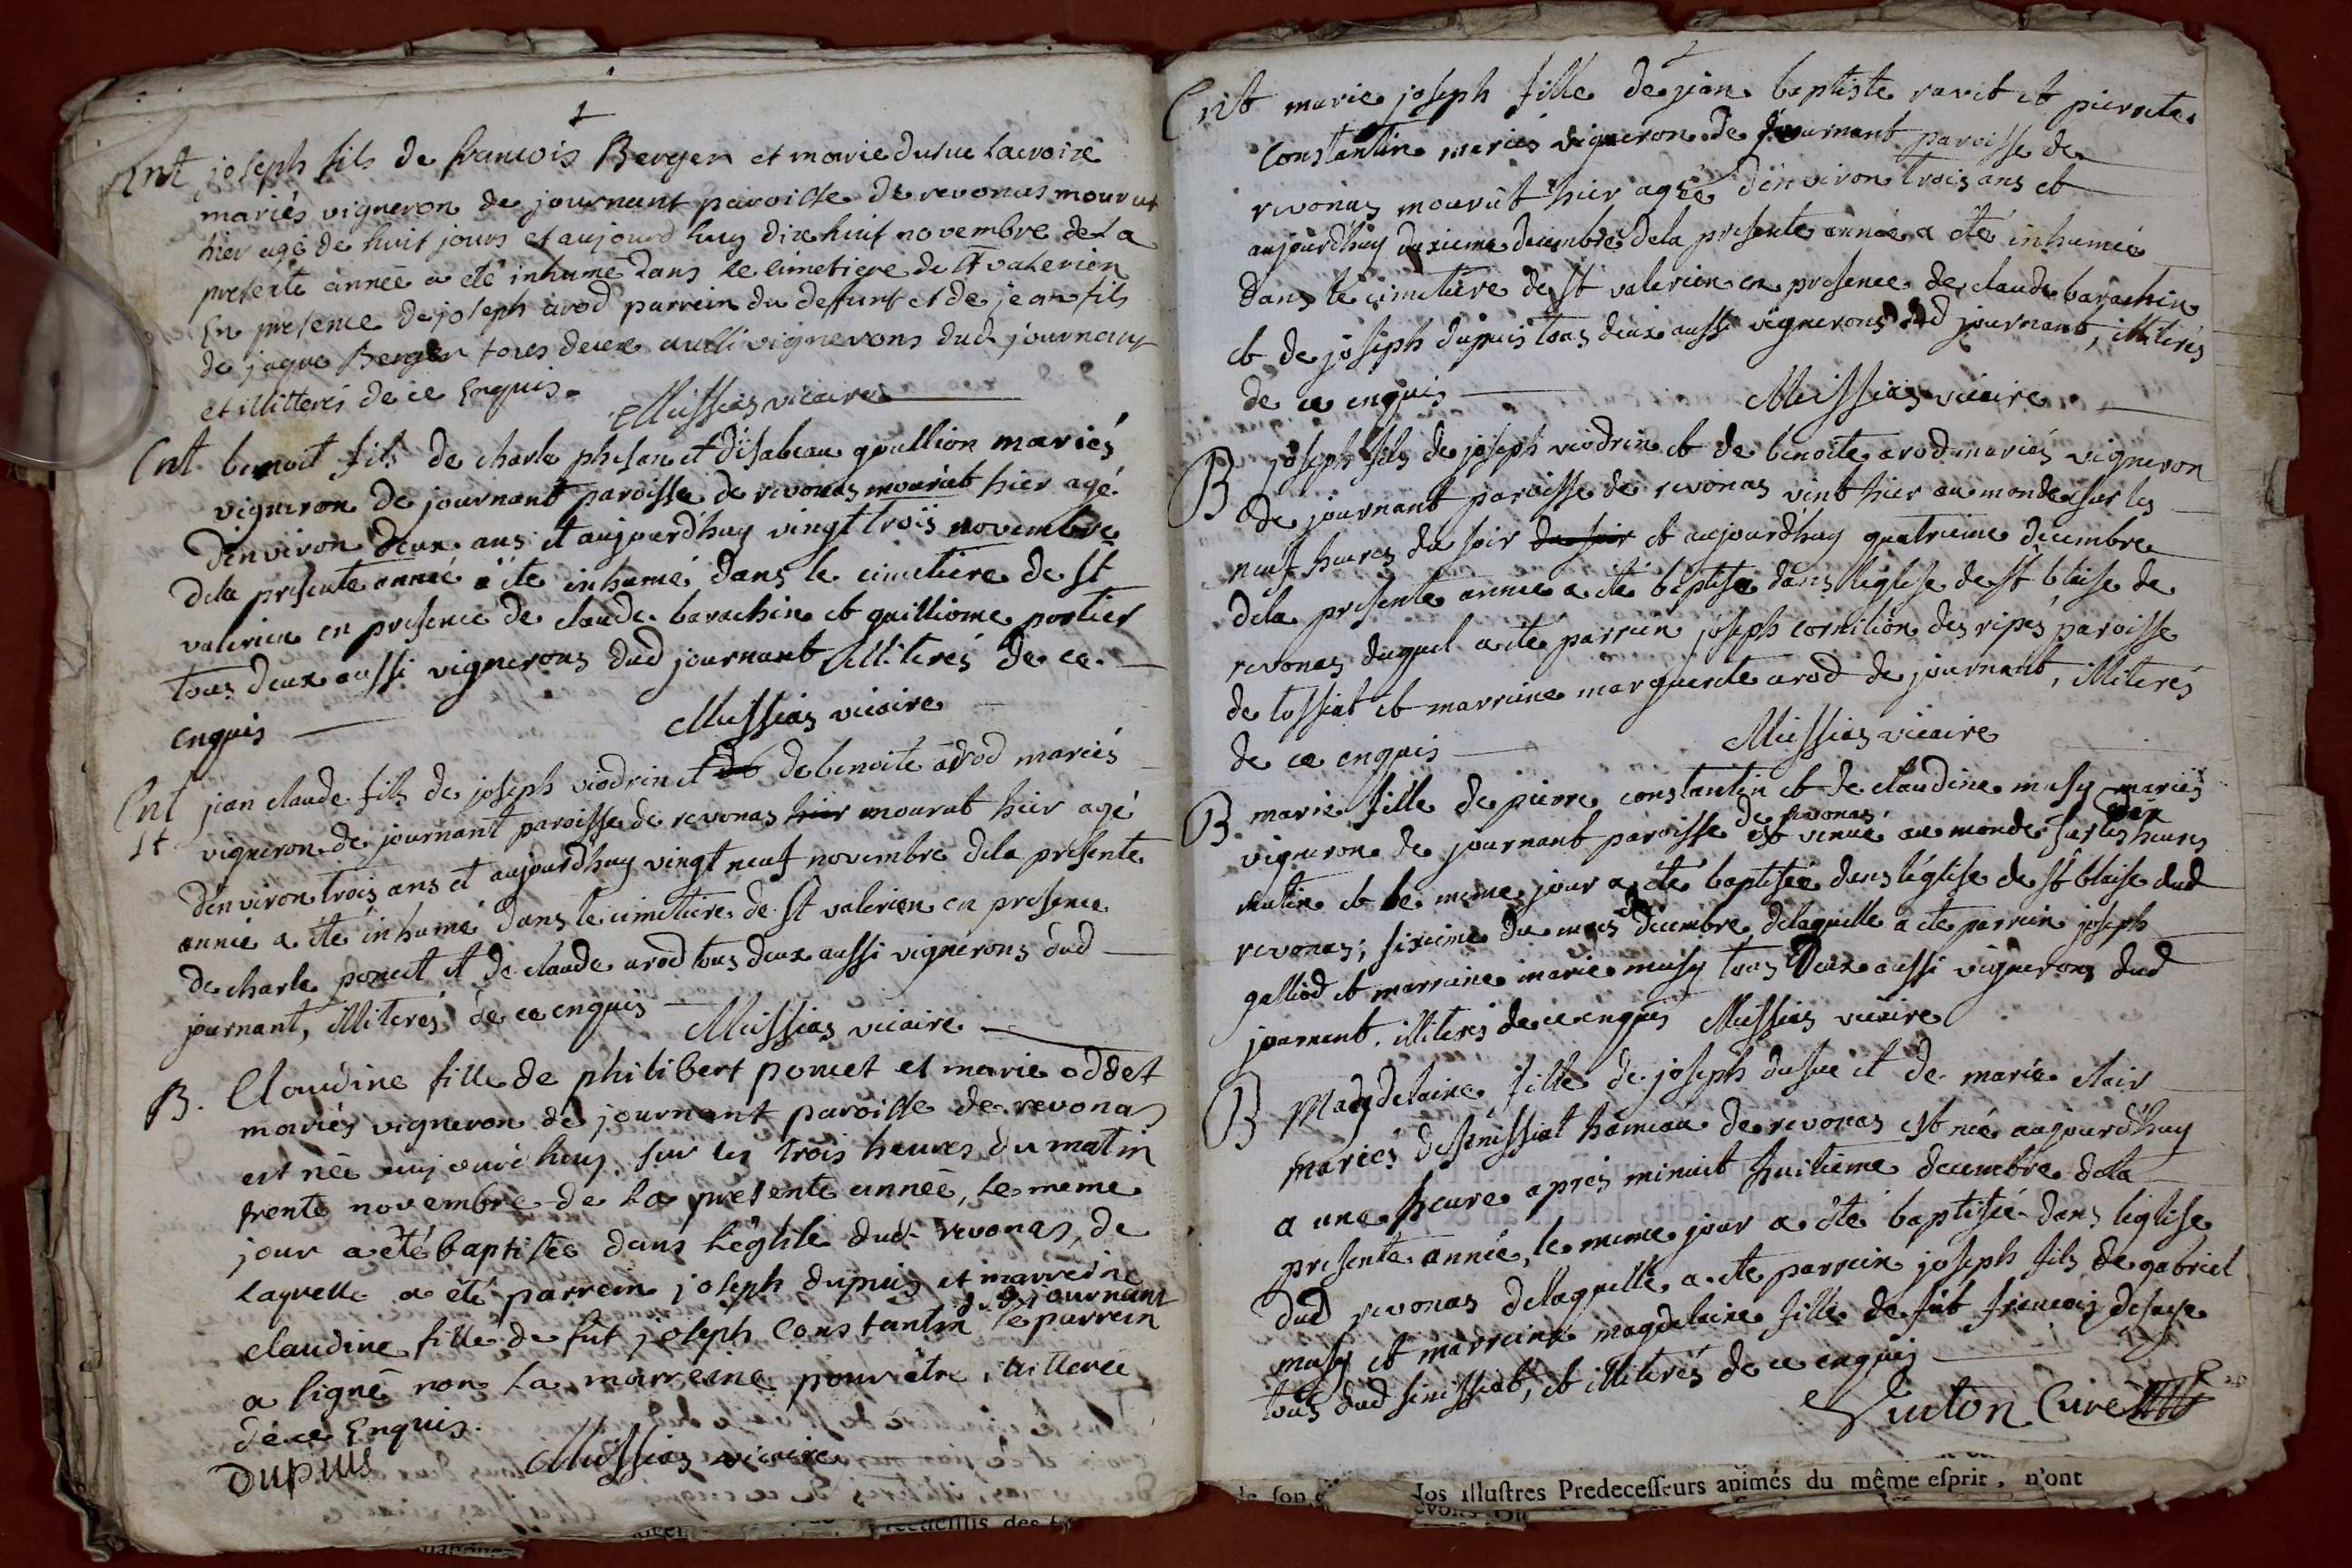 Ent joseph fils de francois Berger et marie dusuc Lacroix
mariés vigneron de journant paroisse de revonas mourut
hier agé de huit jours et aujourd huy dixhuit novembre de La
presente année a eté inhumé dans le cimetiere de St valerien
En presence de joseph arod parrein du defunt et de jean fils
de jaque Berger tous deux aussi vignerons dud journant
et illitterés de ce Enquis. Messias vicaire
Ent benoit fils de charle phisan et disabeau goullion mariés
vigneron de journant paroisse de revonas mourut hier agé
denviron deux ans et aujourdhuy vingt trois novembre
dela presente anneé a été inhumé dans le cimetiere de St
valerien en presence de claude barachin et guilliome portier
tous deux aussi vignerons dud journant illiterés de ce
enquis Messias vicaire
Ent jean claude fils de joseph viodrin et de de benoite arod mariés
vigneron de journant paroisse de revonas hier mourut hier agé
denviron trois ans et aujourdhuy vingt neuf novembre dela presente
année a été inhumé dans le cimetiere de St valerien en presence
de charle poncet et de claude arod tous deux aussi vignerons dud
journant, illiterés de ce enquis Messias vicaire
B. Claudine fille de philibert poncet et marie oddet
mariés vigneron de journant paroisse de revonas
est née aujourd huy sur les trois heures du matin
trente novembre de La presente année, le meme
jour a été baptisée dans Léglise dud revonas, de
Laquelle a été parrein joseph dupuis et marreine
claudine fille de fut joseph Constantin dud journant le parrein
a signé non La marreine pour être illiterée
de ce Enquis.
Dupuis Messias vicaire
Ent marie joseph fille de jean baptiste ravit et pierrete
constantin mariés vigneron de journant paroisse de
revonas mourut hier ageé denviron trois ans et
aujourdhuy deuxieme decembre dela presente année a été inhumée
dans le cimetiere de St valerien en presence de claude barachin
et de joseph dupuis tous deux aussi vignerons dud journant, illiterés
de ce enquis Messias vicaire
B joseph fils de joseph viodrin et de benoite arod mariés vigneron
de journant paroisse de revonas vint hier au monde sur les
neuf heures du soir du soir et aujourdhuy quatrieme decembre
dela presente année a été baptisé dans léglise de St blaise de
revonas duquel a été parrein joseph cornilion des ripes paroisse
de tossiat et marreine marguerite arod de journant, illiterés
de ce enquis Messias vicaire
B marie fille de pierre constantin et de claudine musy mariés
vigneron de journant paroisse de revonas est venue au monde sur les dix heures
matin et le meme jour a été baptisée dans léglise de St blaise dud
revonas; sixieme du mois de decembre delaquelle a été parrein joseph
galliod et marreine marie musy tous deux aussi vignerons dud
journant. illiterés de ce enquis Messias vicaire
B Magdelaine fille de joseph dusuc et de marie clair
mariés de senissiat hameau de revonas est née aujourdhuy
a une heure apres minuit huitieme decembre dela
presente année, le meme jour a été baptisée dans léglise
dud revonas delaquelle a été parrein joseph fils de gabriel
musy et marreine magdelaine fille de fut francois
tous dud senissiat, et illiterés de ce enquis
Curé
Nos illustres Predecesseurs animés du même esprit, n'ont